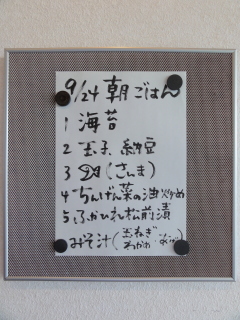 9/24 朝ごはん
1 海苔
2 玉子、納豆
3 (さんま)
4 ちんげん菜の油炒め
5 ふかひれ松前漬
みそ汁(玉ねぎ
わかめ